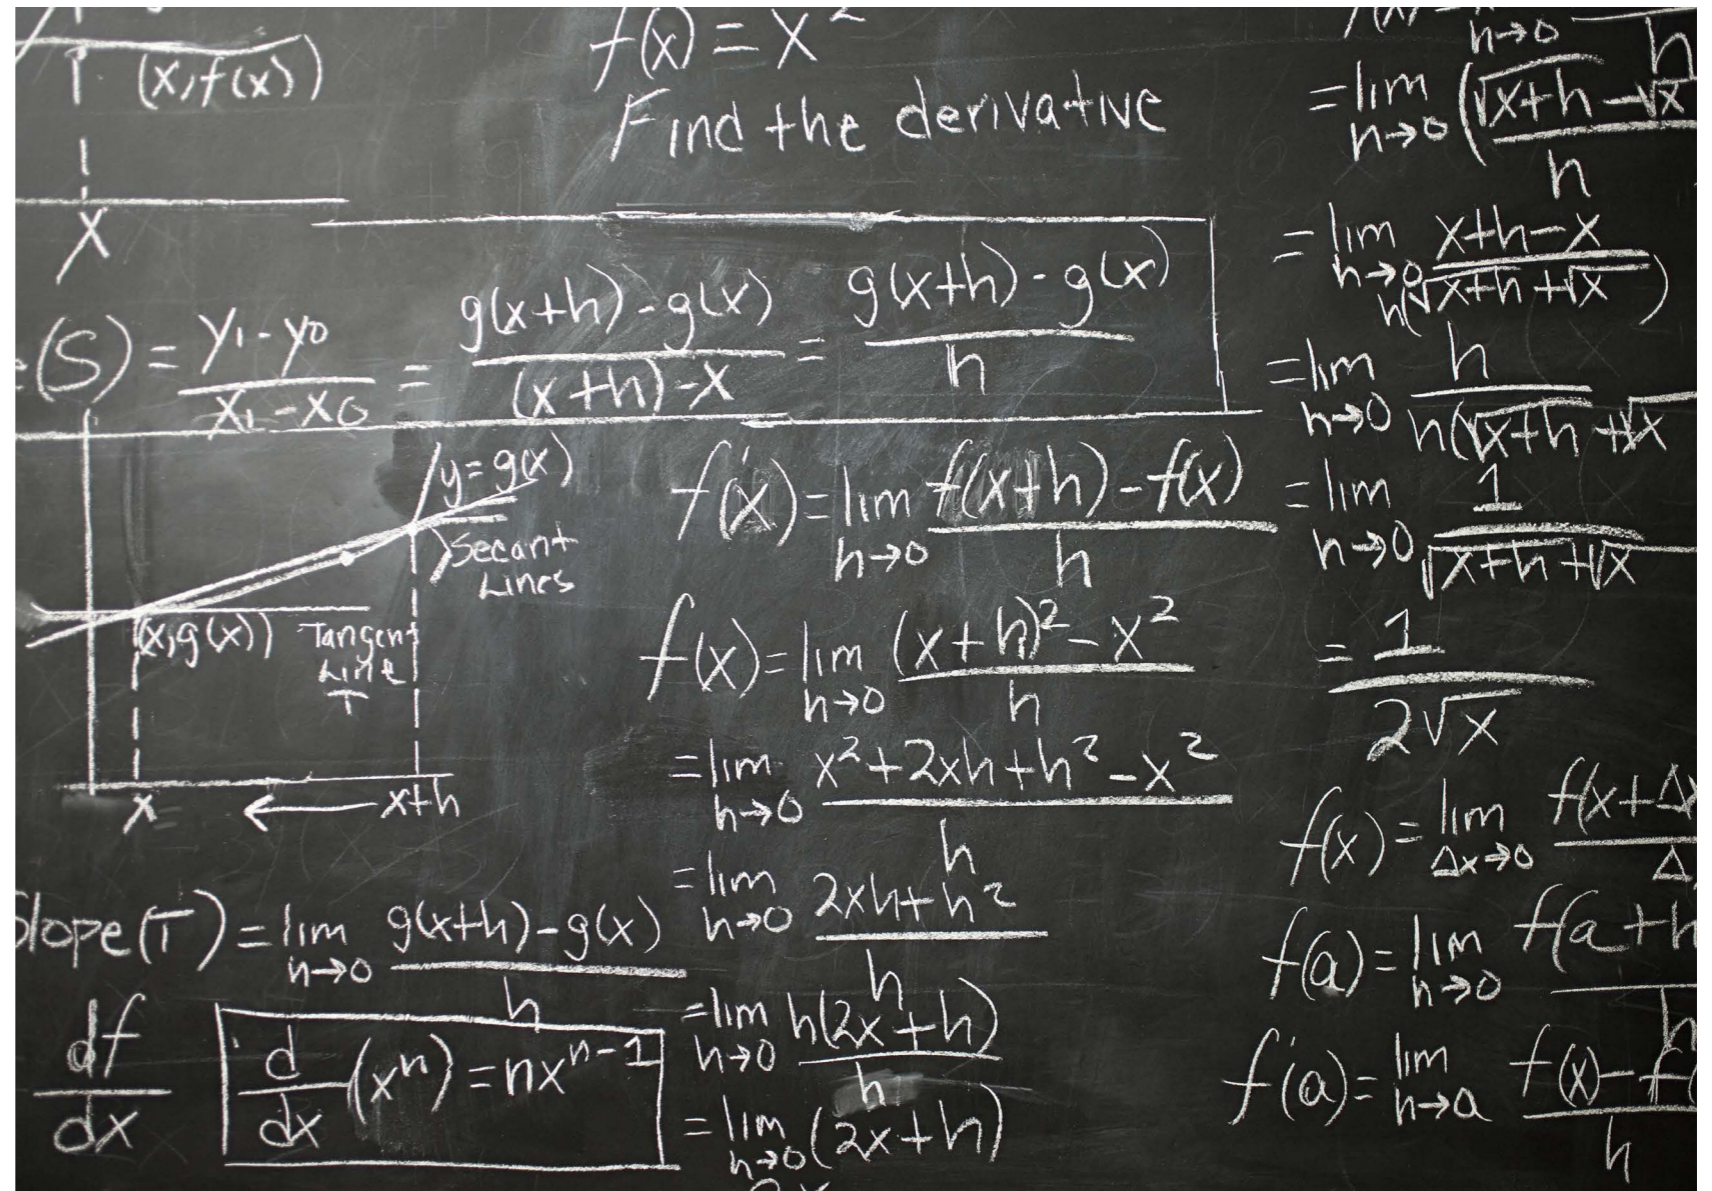 (x,f(x))
x
f(x) = x²
Find the derivative
e(S) = y₁ - y₀ / x₁ - x₀ = g(x+h) - g(x) / (x+h) - x = g(x+h) - g(x) / h
y = g(x)
Secant
Lines
(x,g(x))
Tangent
Line
T
x ← x+h
Slope(T) = lim h→0 g(x+h) - g(x) / h
df/dx
d/dx (xⁿ) = nxⁿ⁻¹
f'(x) = lim h→0 f(x+h) - f(x) / h
f(x) = lim h→0 (x+h)² - x² / h
= lim h→0 x² + 2xh + h² - x² / h
= lim h→0 2xh + h² / h
= lim h→0 h(2x+h) / h
= lim h→0 (2x+h)
h→0 h
= lim h→0 (√x+h - √x / h
= lim h→0 x+h-x / h(√x+h + √x)
= lim h→0 h / h(√x+h + √x
= lim h→0 1 / √x+h + √x
= 1 / 2√x
f(x) = lim Δx→0 f(x+Δx / Δ
f(a) = lim h→0 f(a+h / h
f'(a) = lim h→a f(x) - f( / h